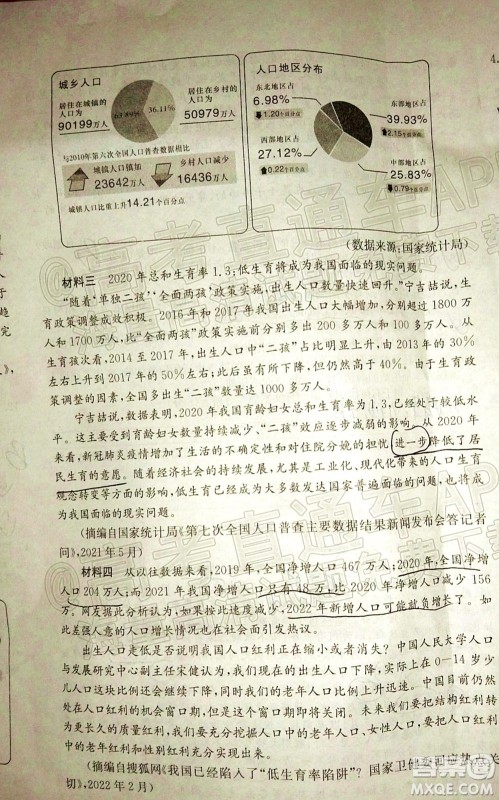 城乡人口
居住在城镇的
人口为
90199万人
63.89%
36.11%
居住在乡村的
人口为
50979万人
与2010年第六次全国人口普查数据相比
城镇人口增加
23642万人
乡村人口减少
16436万人
城镇人口比重上升14.21个百分点
人口地区分布
东北地区占
6.98%
1.20个百分点
东部地区占
39.93%
2.15个百分点
西部地区占
27.12%
0.22个百分点
中部地区占
25.83%
0.79个百分点
4.
(数据来源:国家统计局)
材料三 2020年总和生育率1.3;低生育将成为我国面临的现实问题
“随着‘单独二孩’‘全面两孩’政策实施,出生人口数量快速回升。”宁吉喆说,生
育政策调整成效积极。2016年和2017年我国出生人口大幅增加,分别超过1800万
人和1700万人,比“全面两孩”政策实施前分别出生人口多出200万人和100多万人。
生育孩次看,2014至2017年,出生人口中“二孩”占比明显上升,由2013年的30%
左右上升到2017年的50%左右;此后虽有所下降,但仍然高于40%。由于生育政
策调整的因素,全国多出生“二孩”数量达1000多万人。
宁吉喆说,数据表明,2020年我国育龄妇女总和生育率为1.3,已经处于较低水
平。这主要受到育龄妇女数量持续减少、“二孩”效应逐步减弱的影响。从2020年
来看,新冠肺炎疫情增加了生活的不确定性和对住院分娩的担忧,进一步降低了居
民生育的意愿。随着经济社会的高度发展,工业化、现代化带来的人口生育
观念转变等方方面面的影响,低生育已经成为大多数发达国家普遍面临的问题,也将成
为我国面临的现实问题。
(摘编自国家统计局《第七次全国人口普查主要数据结果新闻发布会答记者
问》,2021年5月)
材料四 从以往数据来看,2019年,全国净增人口467万人;2020年,全国净增
人口204万人;而2021年我国净增人口只有48万,比2020年净增人口减少156
万。网友据此分析认为,如果按此速度减少,2022年新增人口可能就负增长了。如
此的人口增长情况也在社会面引发热议。
出生人口走低是否说明我国人口红利正在缩小或者消失?中国人民大学人口
与发展研究中心副主任宋健认为,我们现在的出生人口下降,实际上是在0-14岁少
儿人口这块比例在减少,同时我们的老年人口比例在升高。中国目前仍然
是从人口红利到人口亏损,还没有到人口负债的时候。我们要把结构红利转
为更长久的质量红利,要充分开发我们的老年人口、女性人口,我们要
的老年红利和性别红利充分实现出来。
(摘编自搜狐网《我国已经陷入了“低生育率陷阱”?国家卫健委回应热点关
切》,2022年2月)